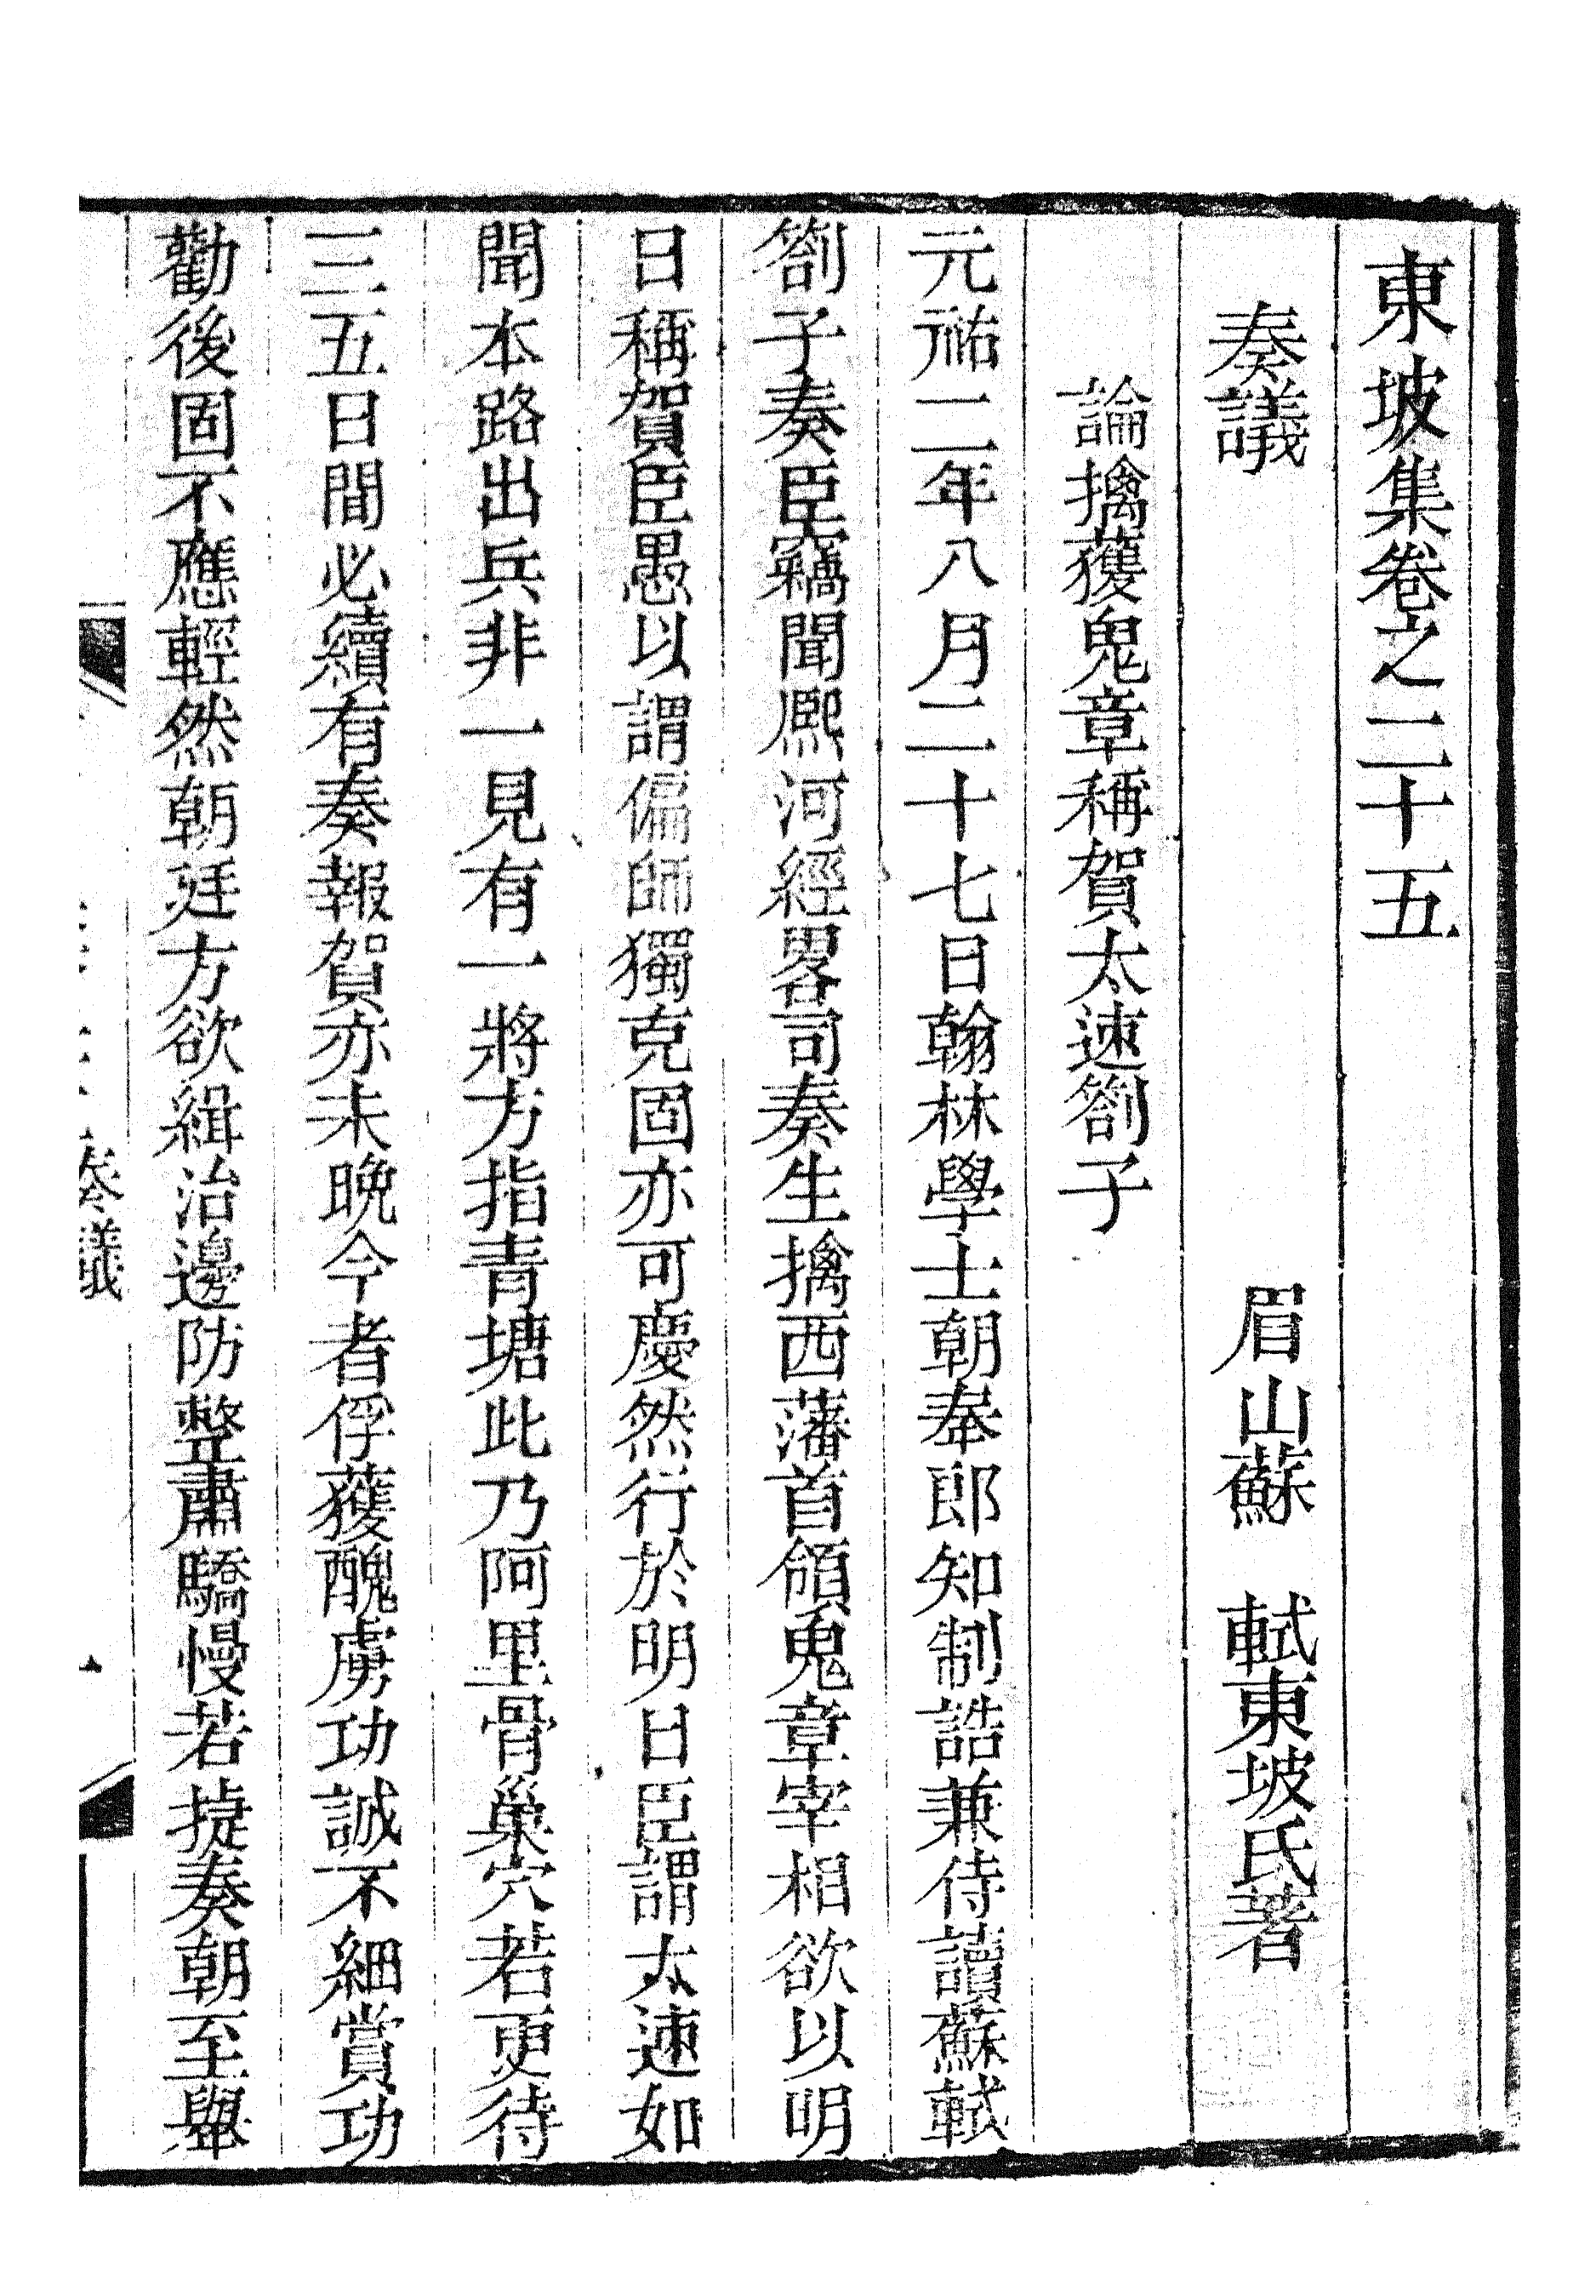 東坡集卷之二十五
奏議　眉山蘇　軾東坡氏著
論擒獲鬼章稱賀太速劄子
元祐二年八月二十七日翰林學士朝奉郎知制誥兼侍讀蘇軾
劄子奏臣竊聞熈河經畧司奏生擒西藩首領鬼章宰相欲以明
日稱賀臣愚以謂偏師獨克固亦可慶然行於明日臣謂太速如
聞本路出兵非一見有一將方指青塘此乃阿里骨巢穴若更待
三五日間必續有奏報賀亦未晚今者俘獲醜虜功誠不細賞功
勸後固不應輕然朝廷方欲緝治邊防整肅驕慢若捷奏朝至舉
奏議